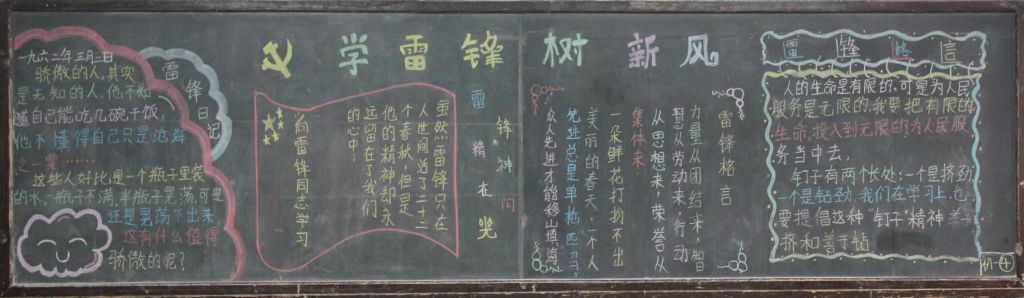 学雷锋 树新风
雷锋日记
一九六二年三月二日
骄傲的人,其实
是无知的人。他不知
道自己能吃几碗干饭,
他不懂得自己只是沧海
之一粟……
这些人好比是一个瓶子里装
的水,一瓶子不满,半瓶子晃荡,可是
还是晃荡不出来,
这有什么值得
骄傲的呢?
向雷锋同志学习
虽然雷锋只在
人世间活了二十二
个春秋,但是
他的精神却永
远留在了我们
的心中。
雷锋精神在闪光
雷锋格言
力量从团结来,智
慧从劳动来,行动
从思想来,荣誉从
集体来。
一朵鲜花打扮不出
美丽的春天,一个人
先进总是单枪匹马,
众人先进才能移山填海。
雷锋格言
人的生命是有限的,可是为人民
服务是无限的,我要把有限的
生命投入到无限的为人民服
务当中去。
钉子有两个长处:一个是挤劲
一个是钻劲。我们在学习上,也
要提倡这种“钉子”精神善于
挤和善于钻
初④